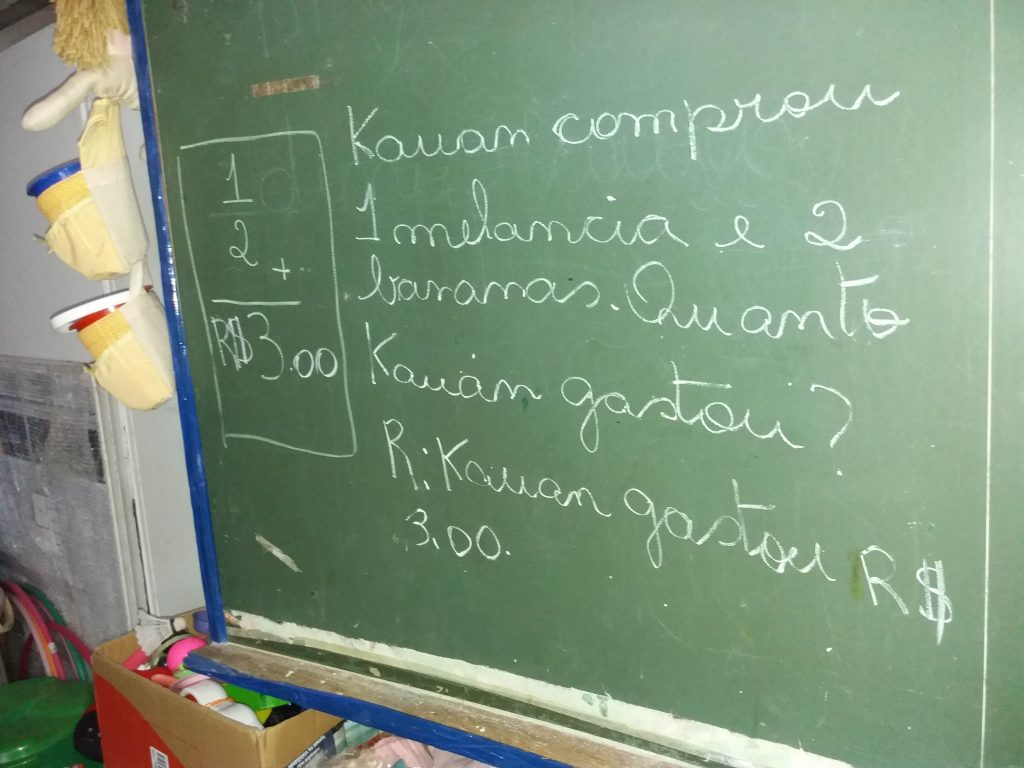 1
2 +
R$3.00
Kauan comprou
1 melancia e 2
bananas. Quanto
Kauan gastou?
R: Kauan gastou R$
3,00.